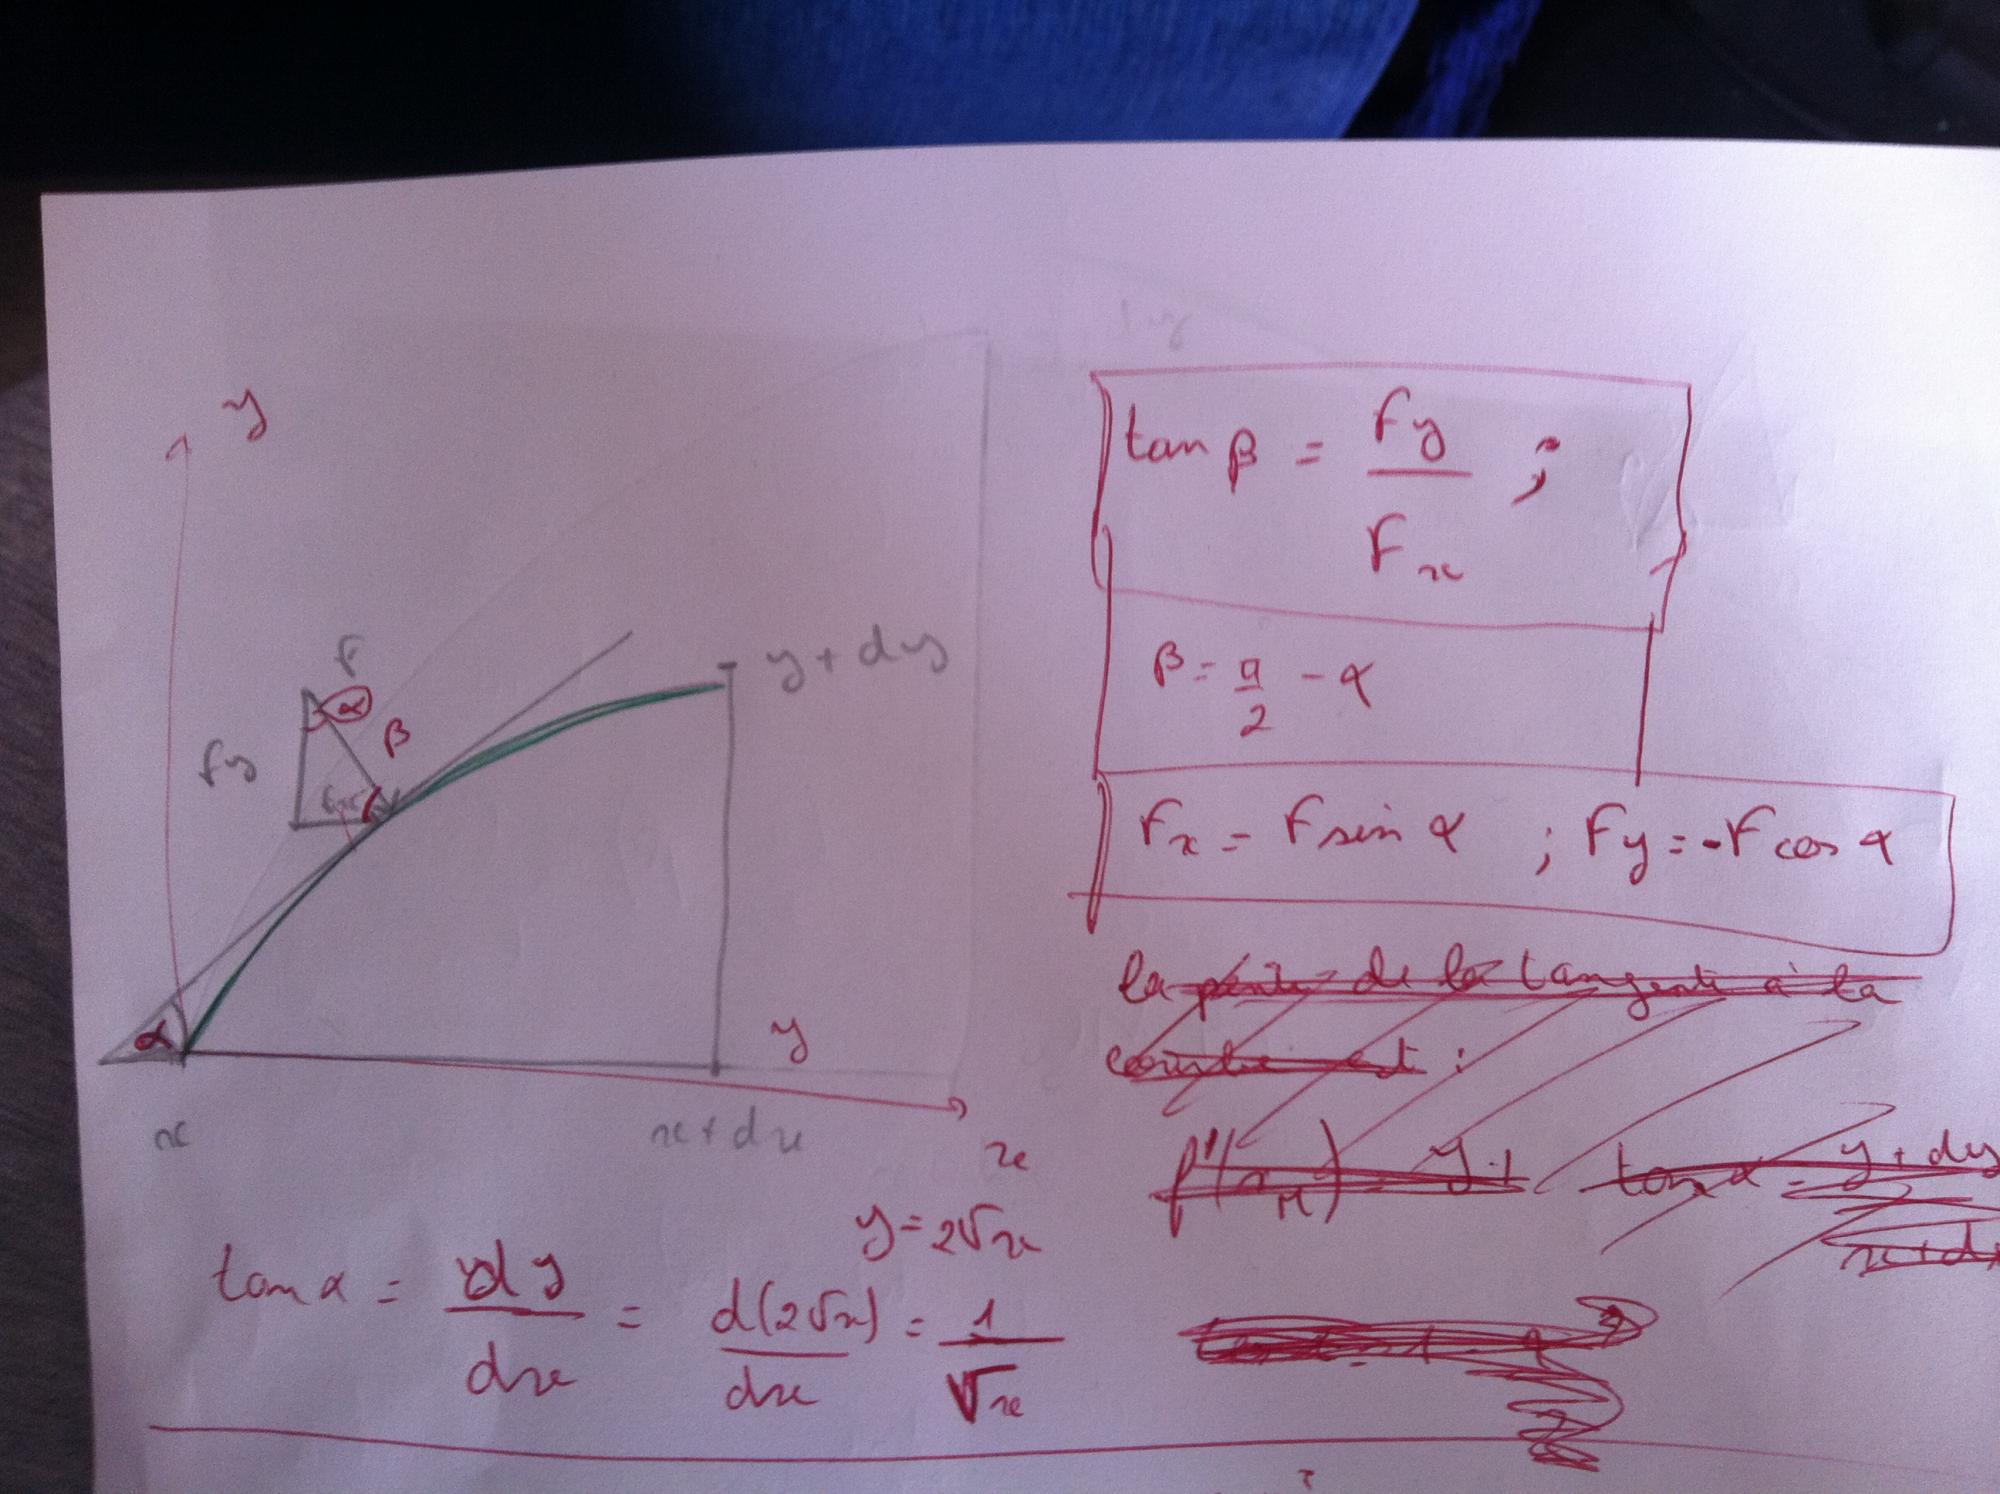 y
F
α
β
Fy
Fx
y + dy
α
y
x
x + dx
x
tan β = Fy / Fx ;
β = π/2 - α
Fx = F sin α ; Fy = -F cos α
la pente de la tangente à la
courbe est :
tan α = y + dy / x + dx
y = 2√x
tan α = dy / dx = d(2√x) / dx = 1 / √x